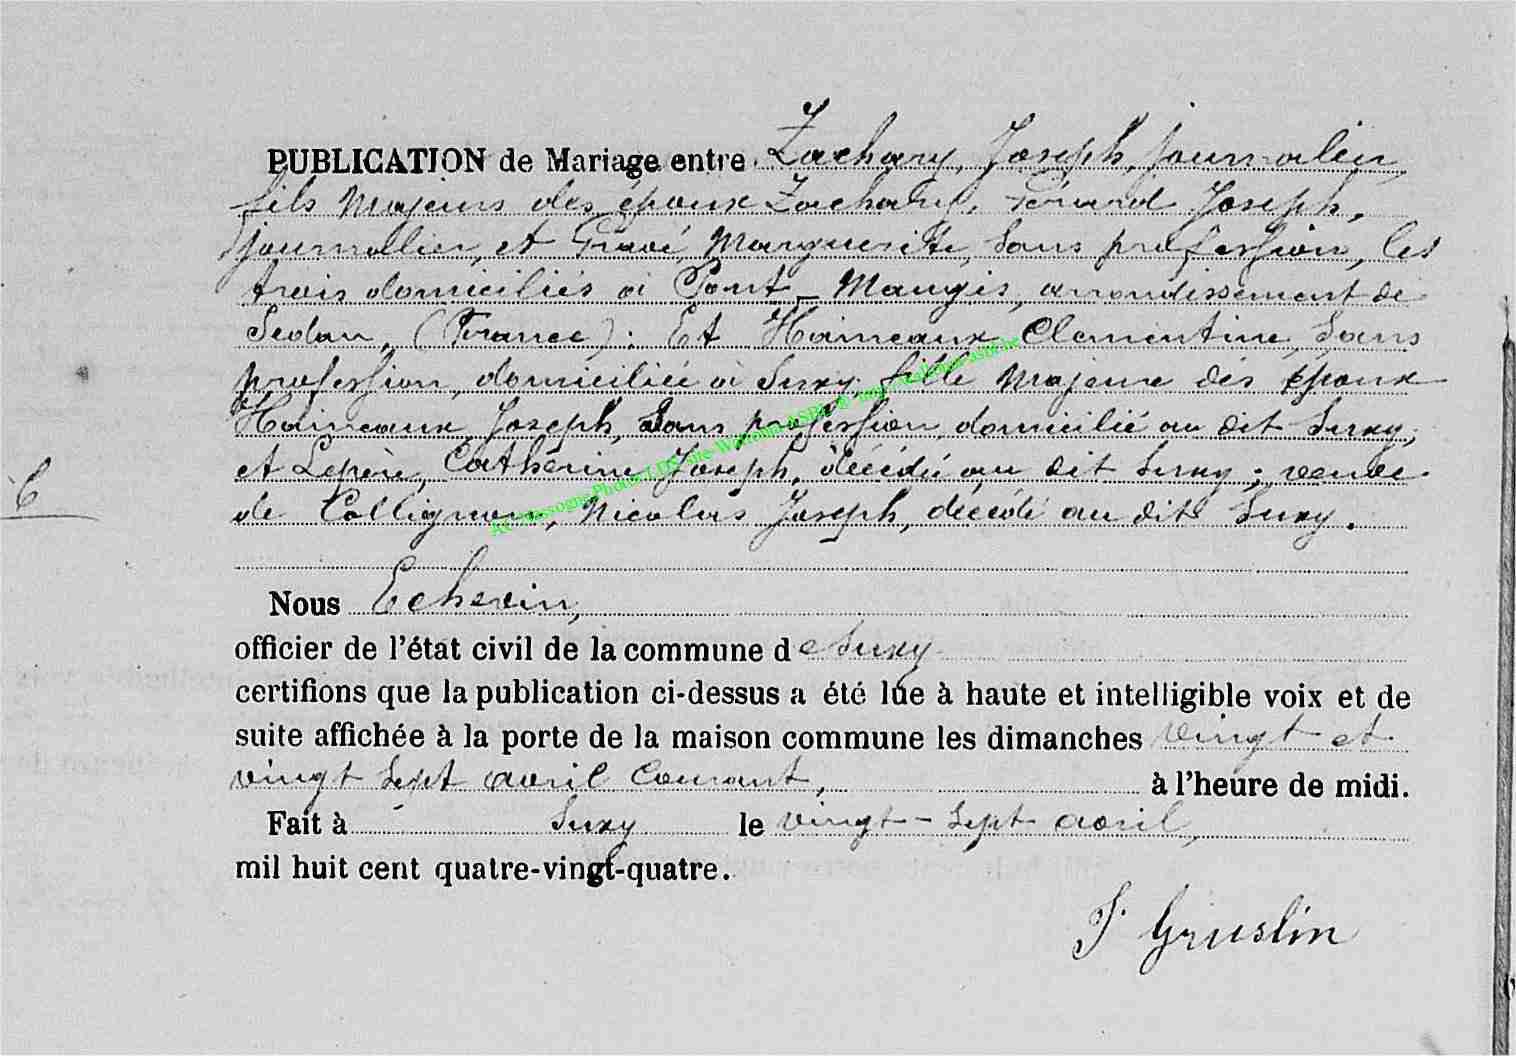 PUBLICATION de Mariage entre Zachary, Joseph, journalier
fils Majeurs des époux Zachary, Gérard Joseph,
journallier, et Gravé, Marguerite, sans profession, les
trois domiciliés à Pont-Maugis, arrondissement de
Sedan, (France) : Et Haineaux Clementine, sans
profession, domiciliée à Suxy, fille Majeure des époux
Haineaux Joseph, sans profession, domicilié au dit Suxy,
et Lepère, Catherine Joseph, décédé au dit Suxy ; veuve
6
de Collignon, Nicolas Joseph, décédé au dit Suxy.
Nous Echevin,
officier de l'état civil de la commune de Suxy
certifions que la publication ci-dessus a été lue à haute et intelligible voix et de
suite affichée à la porte de la maison commune les dimanches vingt et
vingt sept avril courant, à l'heure de midi.
Fait à Suxy le vingt-sept avril,
mil huit cent quatre-vingt-quatre.
J. Gruslin